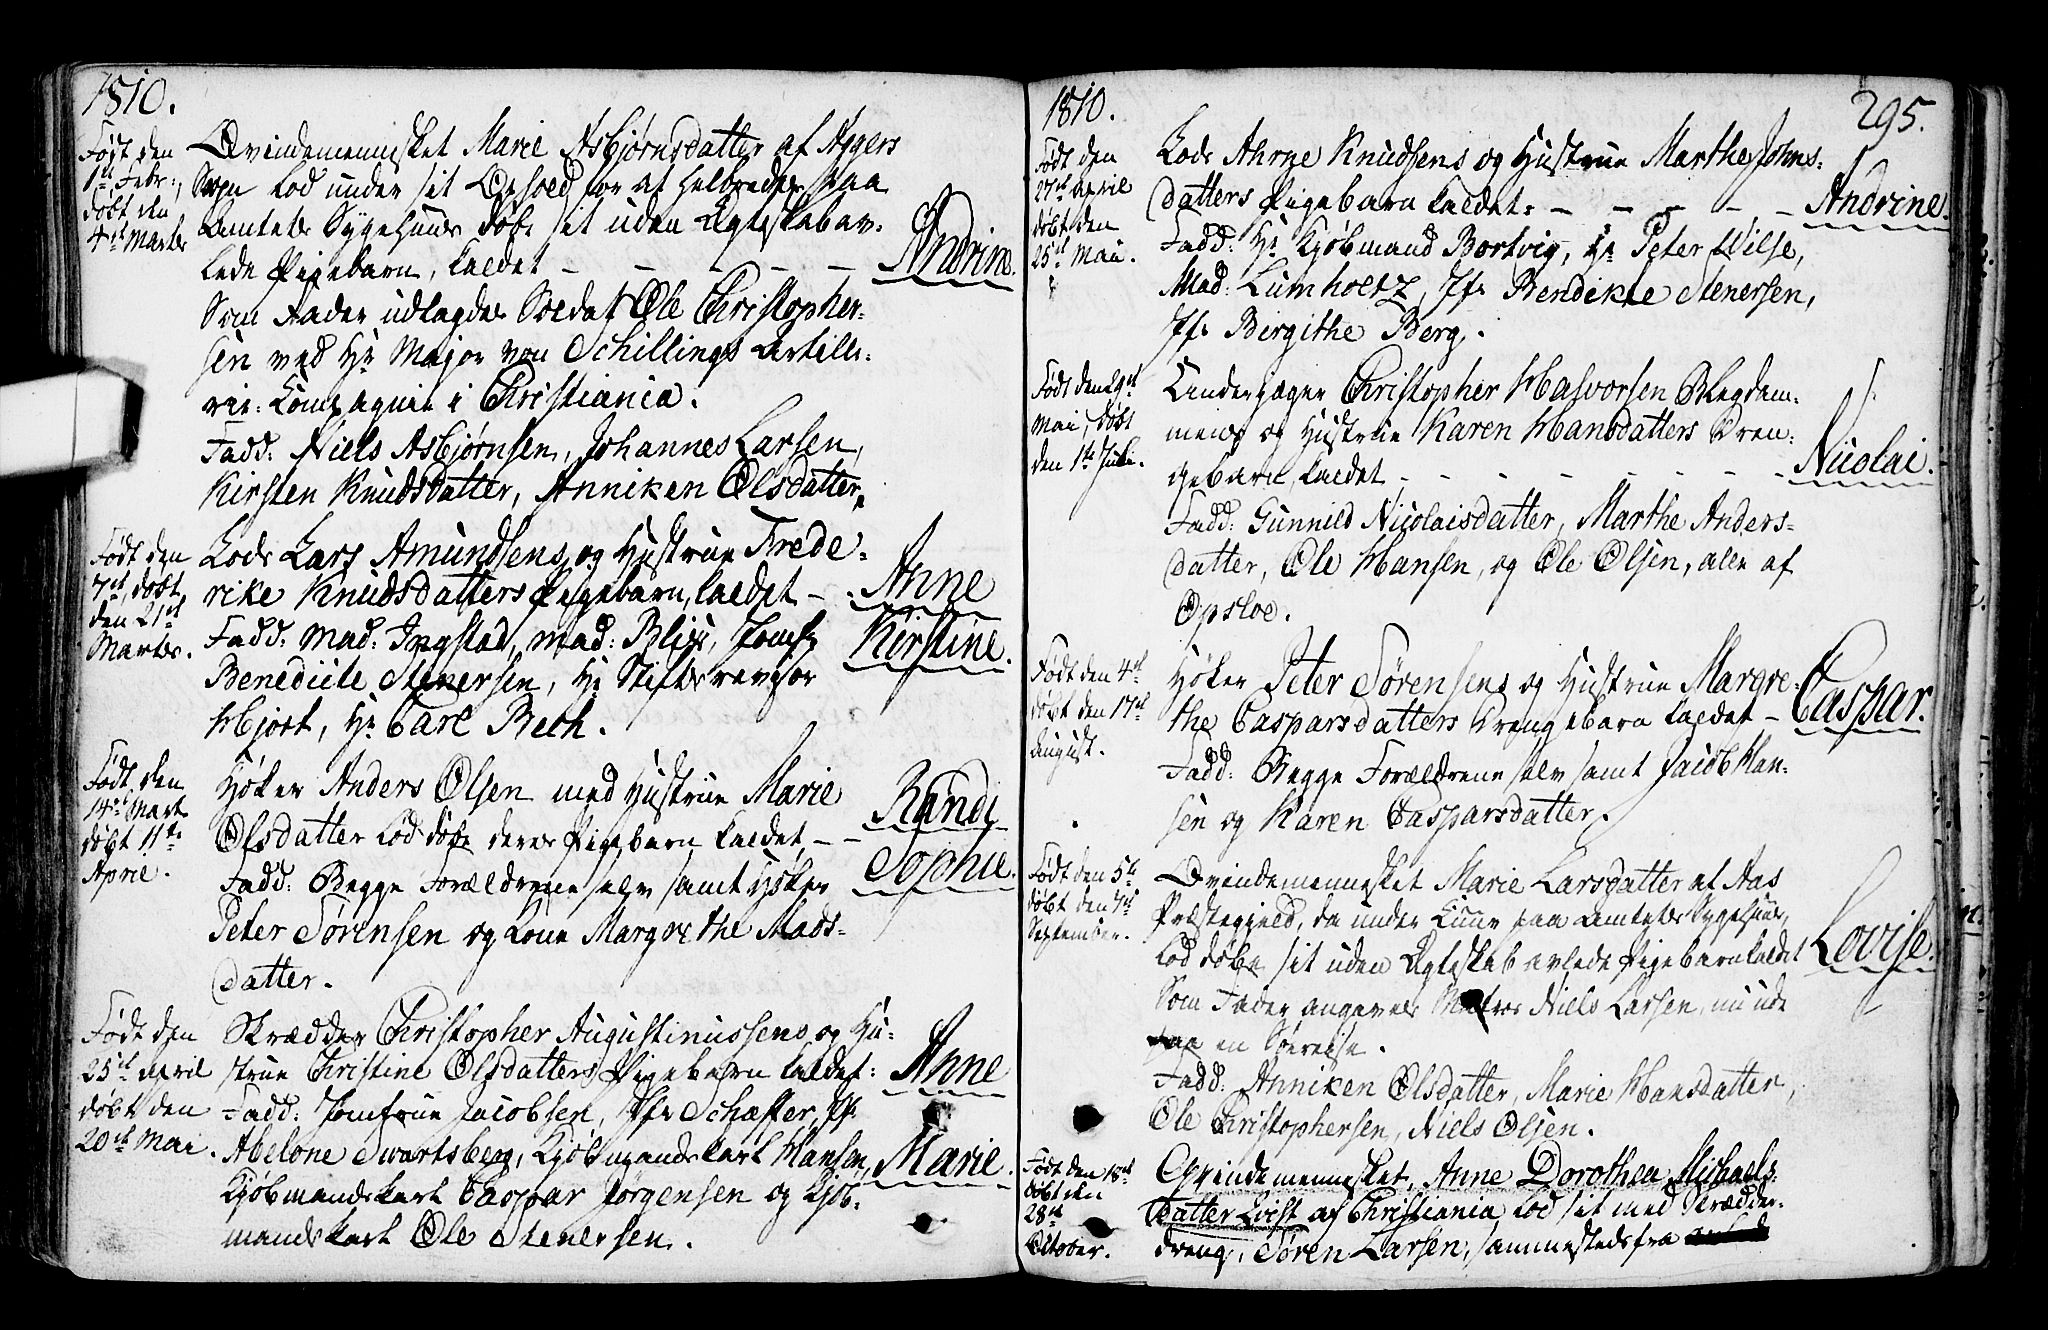 1810.
Født den
1ste Febr:,
døbt den
4de Martes
Qvindemennisket Marie Asbjørnsdatter af Aggers
Sogn lod under sit Ophold for at helbredes paa
Amtets Sygehuus døbe sit uden Ægteskab av-
lede Pigebarn, kaldet - - - - - Andrine.
Som Fader udlagdes Soldat Ole Christopher-
sen ved Hr Major von Schillings Artille-
rie-Compagnie i Christiania.
Fadd: Niels Asbjørnsen, Johannes Larsen,
Kirsten Knudsdatter, Anniken Olsdatter.
Født den
7de, døbt
den 21de
Martes.
Lods Lars Amundsens og Hustrue Frede-
rike Knudsdatters Pigebarn, kaldet - Anne
Kirstine.
Fadd: Mad: Ingstad, Mad: Blix, Jomfr
Benedicte Stenersen, Hr Stiftsrevisor
Hjort, Hr Carl Bech.
Født den
14de Mart
døbt 11te
April.
Høker Anders Olsen med Hustrue Marie
Olsdatter lod døbe deres Pigebarn kaldet - - Randi
Sophie.
Fadd: Begge Forældrene selv samt Høker
Peter Sørensen og Kone Margrethe Mads-
datter.
Født den
25de April
døbt den
20de Mai.
Skrædder Christopher Augustinussens og Hu-
strue Christine Olsdatters Pigebarn kaldet: Anne
Marie.
Fadd: Jomfrue Jacobsen, Jfr Schæffer, Jfr
Abelone Swartsberg, Kjøbmandskarl Hansen,
Kjøbmandskarl Caspar Jørgensen og Kjøb-
mandskarl Ole Stenersen.
1810.
295.
Født den
27de April
døbt den
25de Mai.
Lods Ahrne Knudsens og Hustrue Marthe Johns-
datters Pigebarn kaldet: - - - - - Andrine.
Fadd: Hr Kjøbmand Bortvig, Hr Peter Wilse,
Mad: Lumholtz, Jfr Bendikte Stenersen,
Jfr Birgithe Berg.
Født den 29de
Mai, døbt
den 1ste Juli.
Landjæger Christopher Halvorsen Blegdam-
mens og Hustrue Karen Hansdatters Dren-
gebarn, kaldet - - - - - - - Nicolai.
Fadd: Gunnild Nicolaisdatter, Marthe Anders-
datter, Ole Hansen, og Ole Olsen, alle af
Opsloe.
Født den 4de
døbt den 17de
August.
Høker Peter Sørensens og Hustrue Margre-
the Caspersdatters Drengebarn kaldet - Caspar.
Fadd: Begge Forældrene selv samt Jacob Han-
sen og Karen Caspersdatter.
Født den 5te
døbt den 7de
September.
Qvindemennisket Marie Larsdatter af Aas
Præstegjeld, da under Cuur paa Amtets Sygehuus,
lod døbe sit uden Ægteskab avlede Pigebarn kaldet Lovise.
Som Fader angaves Matros Niels Larsen, nu ude
paa en Søereise.
Fadd: Anniken Olsdatter, Marie Hansdatter,
Ole Christophersen, Niels Olsen.
Født den 18de
døbt den
28de
October.
Qvindemennisket, Anne Dorothea Michaels-
datter Qvist af Christiania lod sit med Skrædder-
dreng, Søren Larsen, sammesteds fra